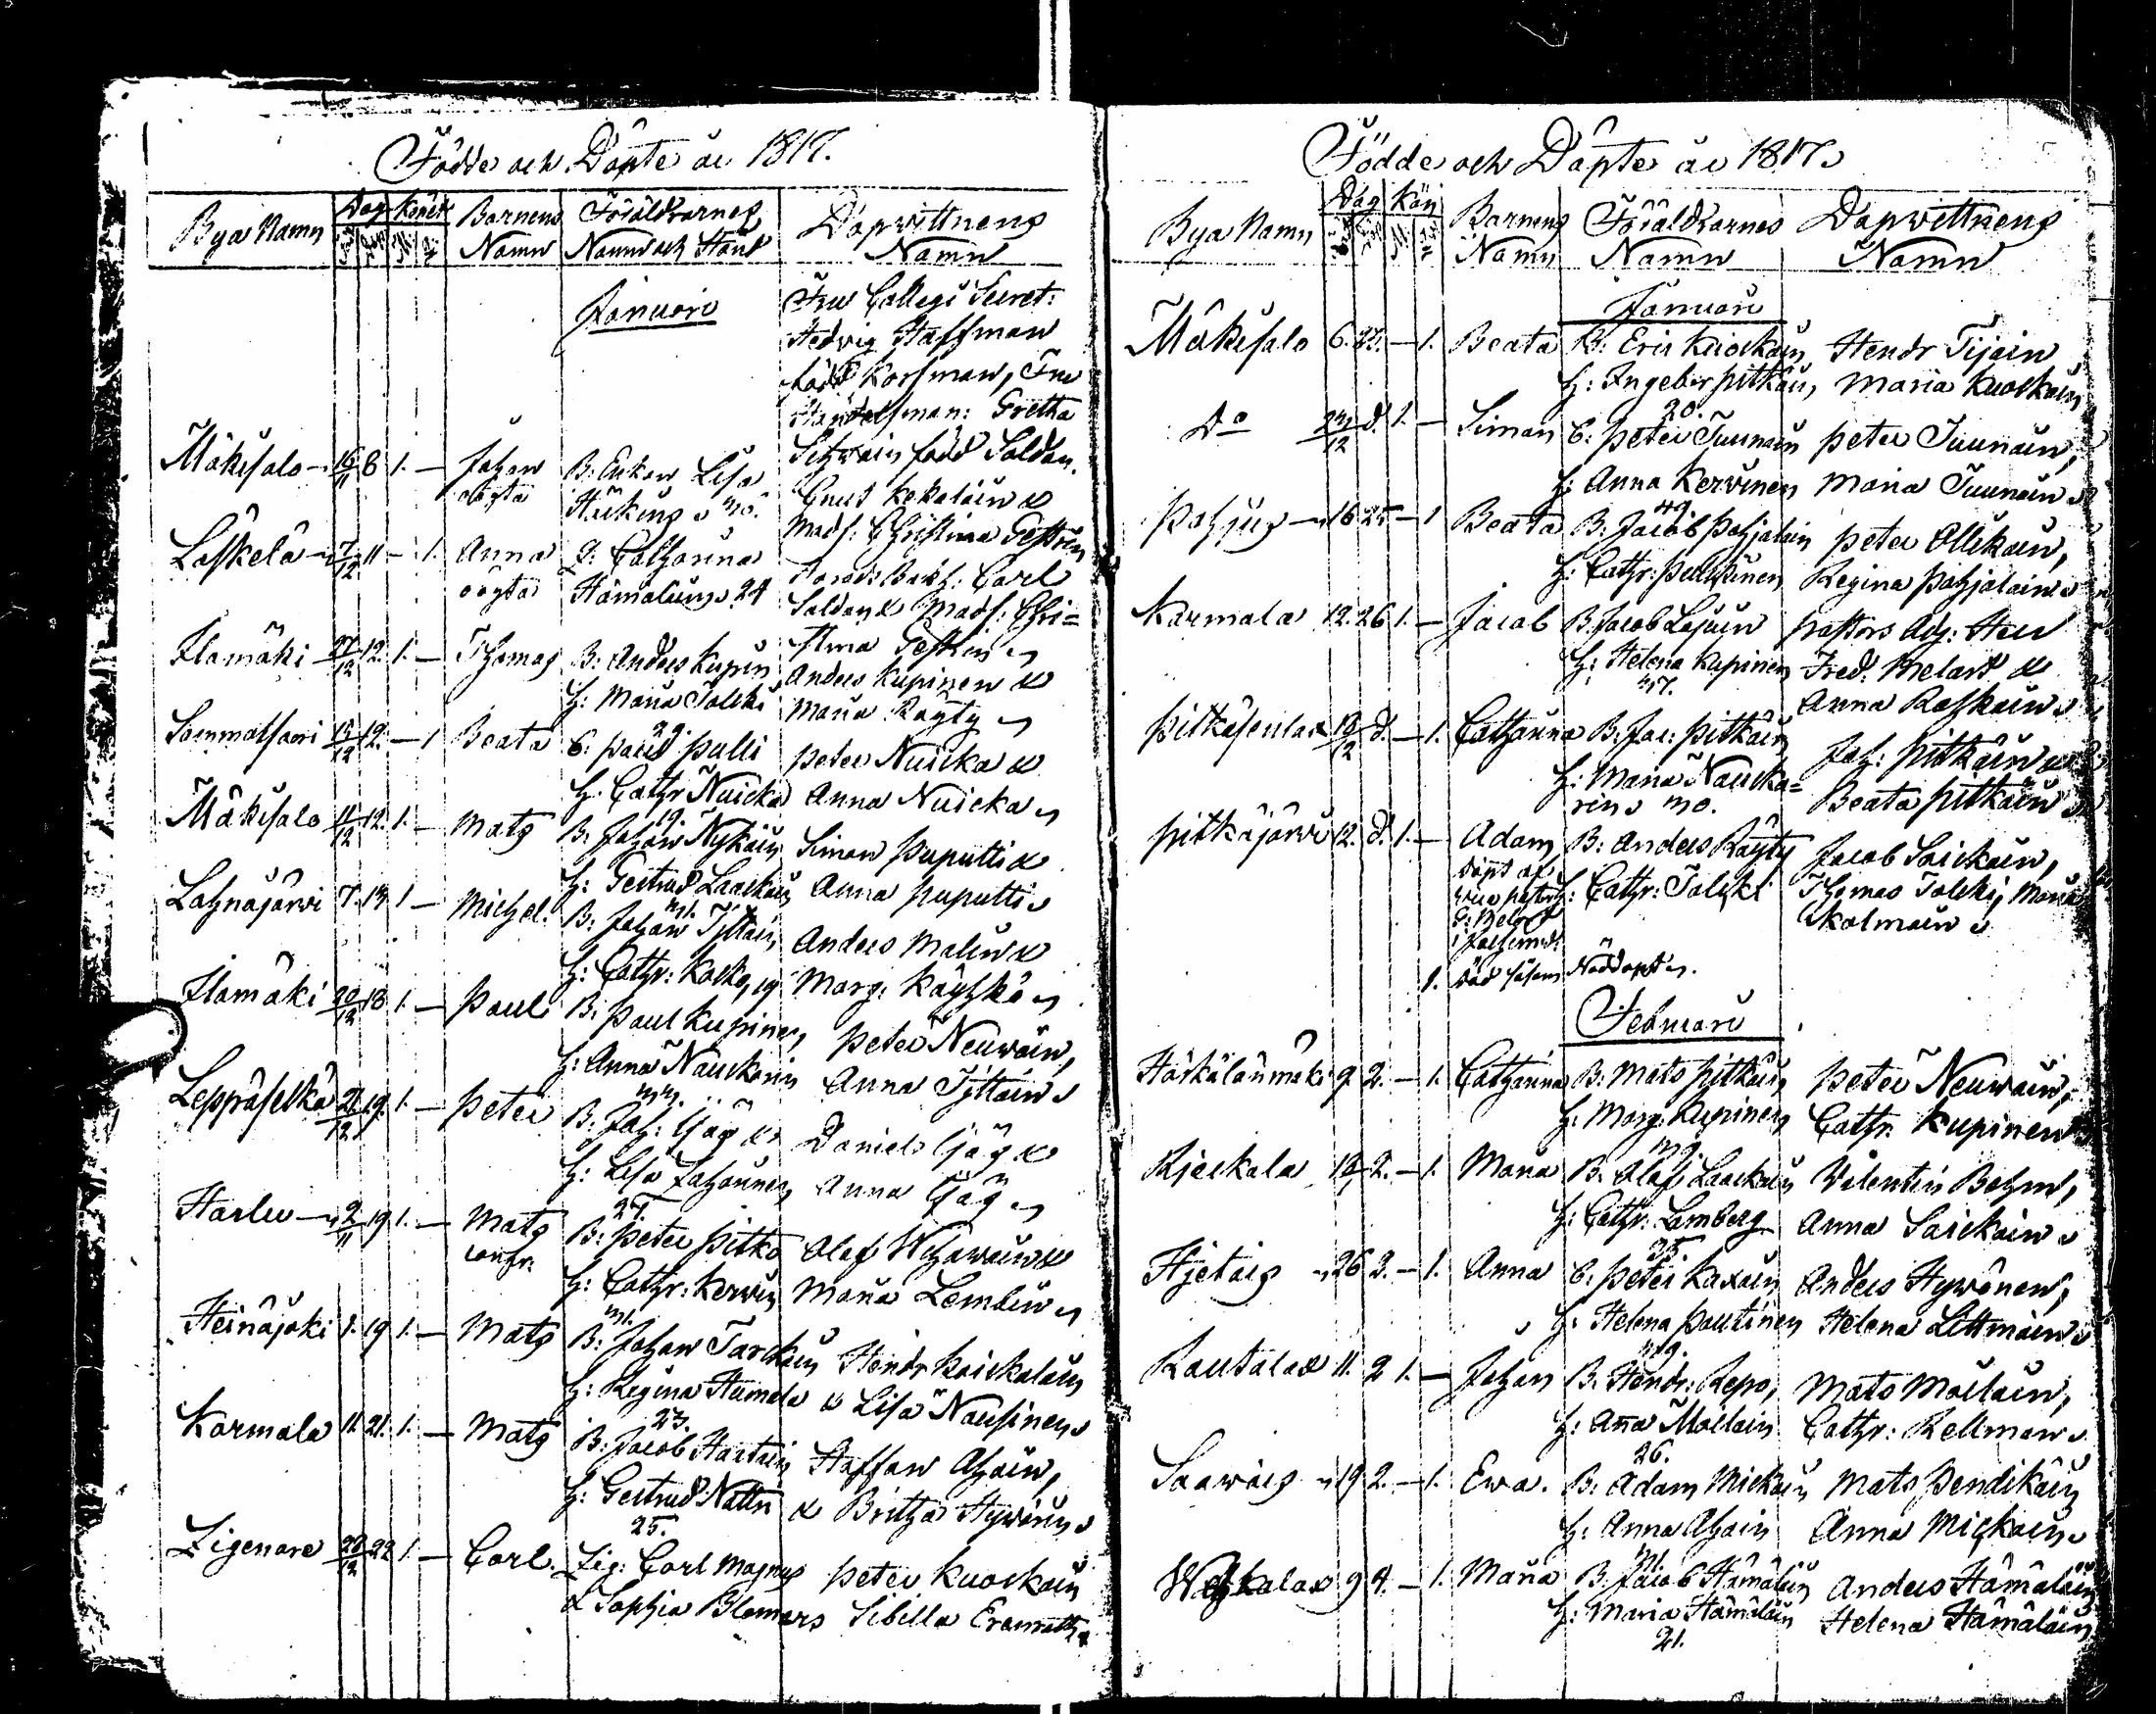 Födde och Döpte år 1817.
Bya Namn
Dag Könet
Barnens Namn
Föräldrarnes Namn och Stånd
Döpwittnens Namn
Januari
Fru Collegi Secret:
Hedvig Haffman
född Korsman, Fru
Handelsman: Gretha
född Soldan.
Mäkisalo 16/11 6 1. — Johan oägta
B: Enkan Lisa
Gnut Kokaläin &
Läskelä 7/12 11 — 1. Anna oägta
P: Catharina
Hämäläin 24
Mads: Christina
Bokh: Carl
Soldan & Mads: Chri=
stina
Ilamäki 27/12 12. 1. — Thomas
B: Anders Kupin
H: Maria Tolski
29.
Anders Kupinen &
Maria Räyty
Sommatsaari 15/12 12. — 1 Beata
B: Paul Pulli
H: Cathr Nuicka
19.
Peter Nuicka &
Anna Nuicka
Mäkisalo 11/12 12. 1. — Mats
B: Johan Nykäin
H: Gertrud Laackain
31.
Simon Puputti &
Anna Puputti
Lahnajärvi 7. 14 1 — Michel.
B: Johan Tyttäin
H: Cathr: Kosko, 19
Anders Malin &
Marg: Käyhkö
Ilamäki 20/12 18 1. — Paul
B: Paul Kupinen
H: Anna Nauckarin
Peter Neuwäin,
Anna Tyttäin
Leppäselkä 21/12 19. 1. — Peter
B: Joh:
H: Lisa Johannen
25.
Daniel
Anna
Harlu 2/11 19 1. — Mats
B: Peter Pitko
H: Cathr: Kervin
31.
Olof Wihawain &
Maria Lembin
Heinäjoki 1. 19 1. — Mats
B: Johan Tarckain
H: Regina Humala
23.
Hendr Koickalain
& Lisa Nousinen
Karmala 11. 21. 1. — Mats
B: Jacob Hartin
H: Gertrud Natri
25.
Staffan Ahoin,
& Britha Hywärin
Zigenare 28/12 22 1. — Carl.
Zig: Carl Magnus
& Sophia Blomars
Peter Kuockain
Sibilla
Födde och Döpte år 1817.
Bya Namn
Dag Kön
Barnens Namn
Föräldrarnes Namn
Döpwittnens Namn
Januari
Mäkisalo 6. 22. — 1. Beata
B: Eric Kuockain
H: Ingebor Pitkäin,
20.
Hendr Tijain
Maria Kuockain
Do 24/12 d. 1. — Simon
B: Peter Tuunain
H: Anna Kervinen
49.
Peter Tuunain,
Maria Tuunain
Pohjus 16 25 — 1 Beata
B: Jacob Pohjalain
H: Cathr: Pulkinen
Peter Ollikain,
Regina Pohjalain
Karmala 12. 26 1. — Jacob
B: Jacob Lajuin
H: Helena Kupinen
37.
Pastors Adj: Herr
Fred. Melart &
Anna Raskain
Pitkäpenlax 19/12 d. — 1. Catharina
B: Jac: Pitkäin
H: Maria Naucka=
rin 30.
Joh: Pitkäin &
Beata Pitkäin
Pitkäjärvi 12. d. 1. — Adam
döpt af
B: Anders Räyty
H: Cathr: Tolski
Jacob Saickain,
Thomas Tolski, Maria
Skalmain
1. död
Nöddopt
Februari
Härkälänmäki 9 2. — 1. Catharina
B: Mats Pitkäin
H: Marg: Kupinen
39.
Peter Neuwäin,
Cathr. Kupinen
Rieckala 12 2. — 1. Maria
B: Olof Laackain
H: Cathr. Lemberg
25.
Valentin Behm,
Anna Saickain
Hjetais 26 2. — 1. Anna
B: Peter Kaxain
H: Helena Poutinen
39.
Anders Hywönen,
Helena Littmain
Rautalax 11. 2 1. — Johan
B: Hendr: Repo,
H: Anna Moilain
26.
Mats Moilain,
Cathr: Kellman
Saawais 19 2. — 1. Ewa.
B: Adam Mickain
H: Anna Ahoin
31.
Mats Pendikäin
Anna Mickain
9 4. — 1. Maria
B: Jacob Hämäläin
H: Maria Hämäläin
21.
Anders Hämäläin
Helena Hämäläin